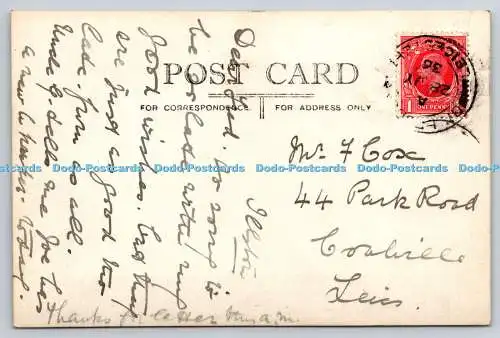 POST CARD
FOR CORRESPONDENCE
FOR ADDRESS ONLY
ONE PENNY
Ilston
Dear Fred. So sorry to
be so late with my
good wishes. but they
are just as good
lad. from us all.
Uncle G. tells me Joe has
a new
Thanks for letter
Mr F Cox
44 Park Road
Coalville
Leics.
Dodo-Postcards Dodo-Postcards Dodo-Postcards Dodo-Postcards Dodo-Postcards Dodo-Postcards